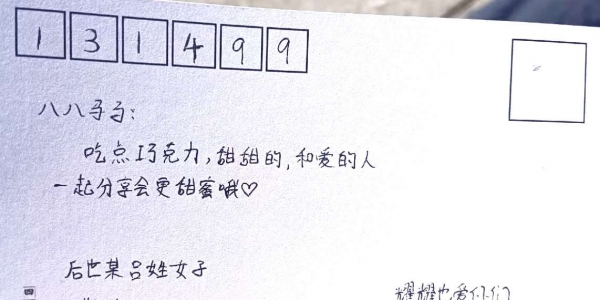 131499
八八孑孑：
吃点巧克力，甜甜的，和爱的人
一起分享会更甜蜜哦♡
后世某吕姓女子
耀耀也爱你们